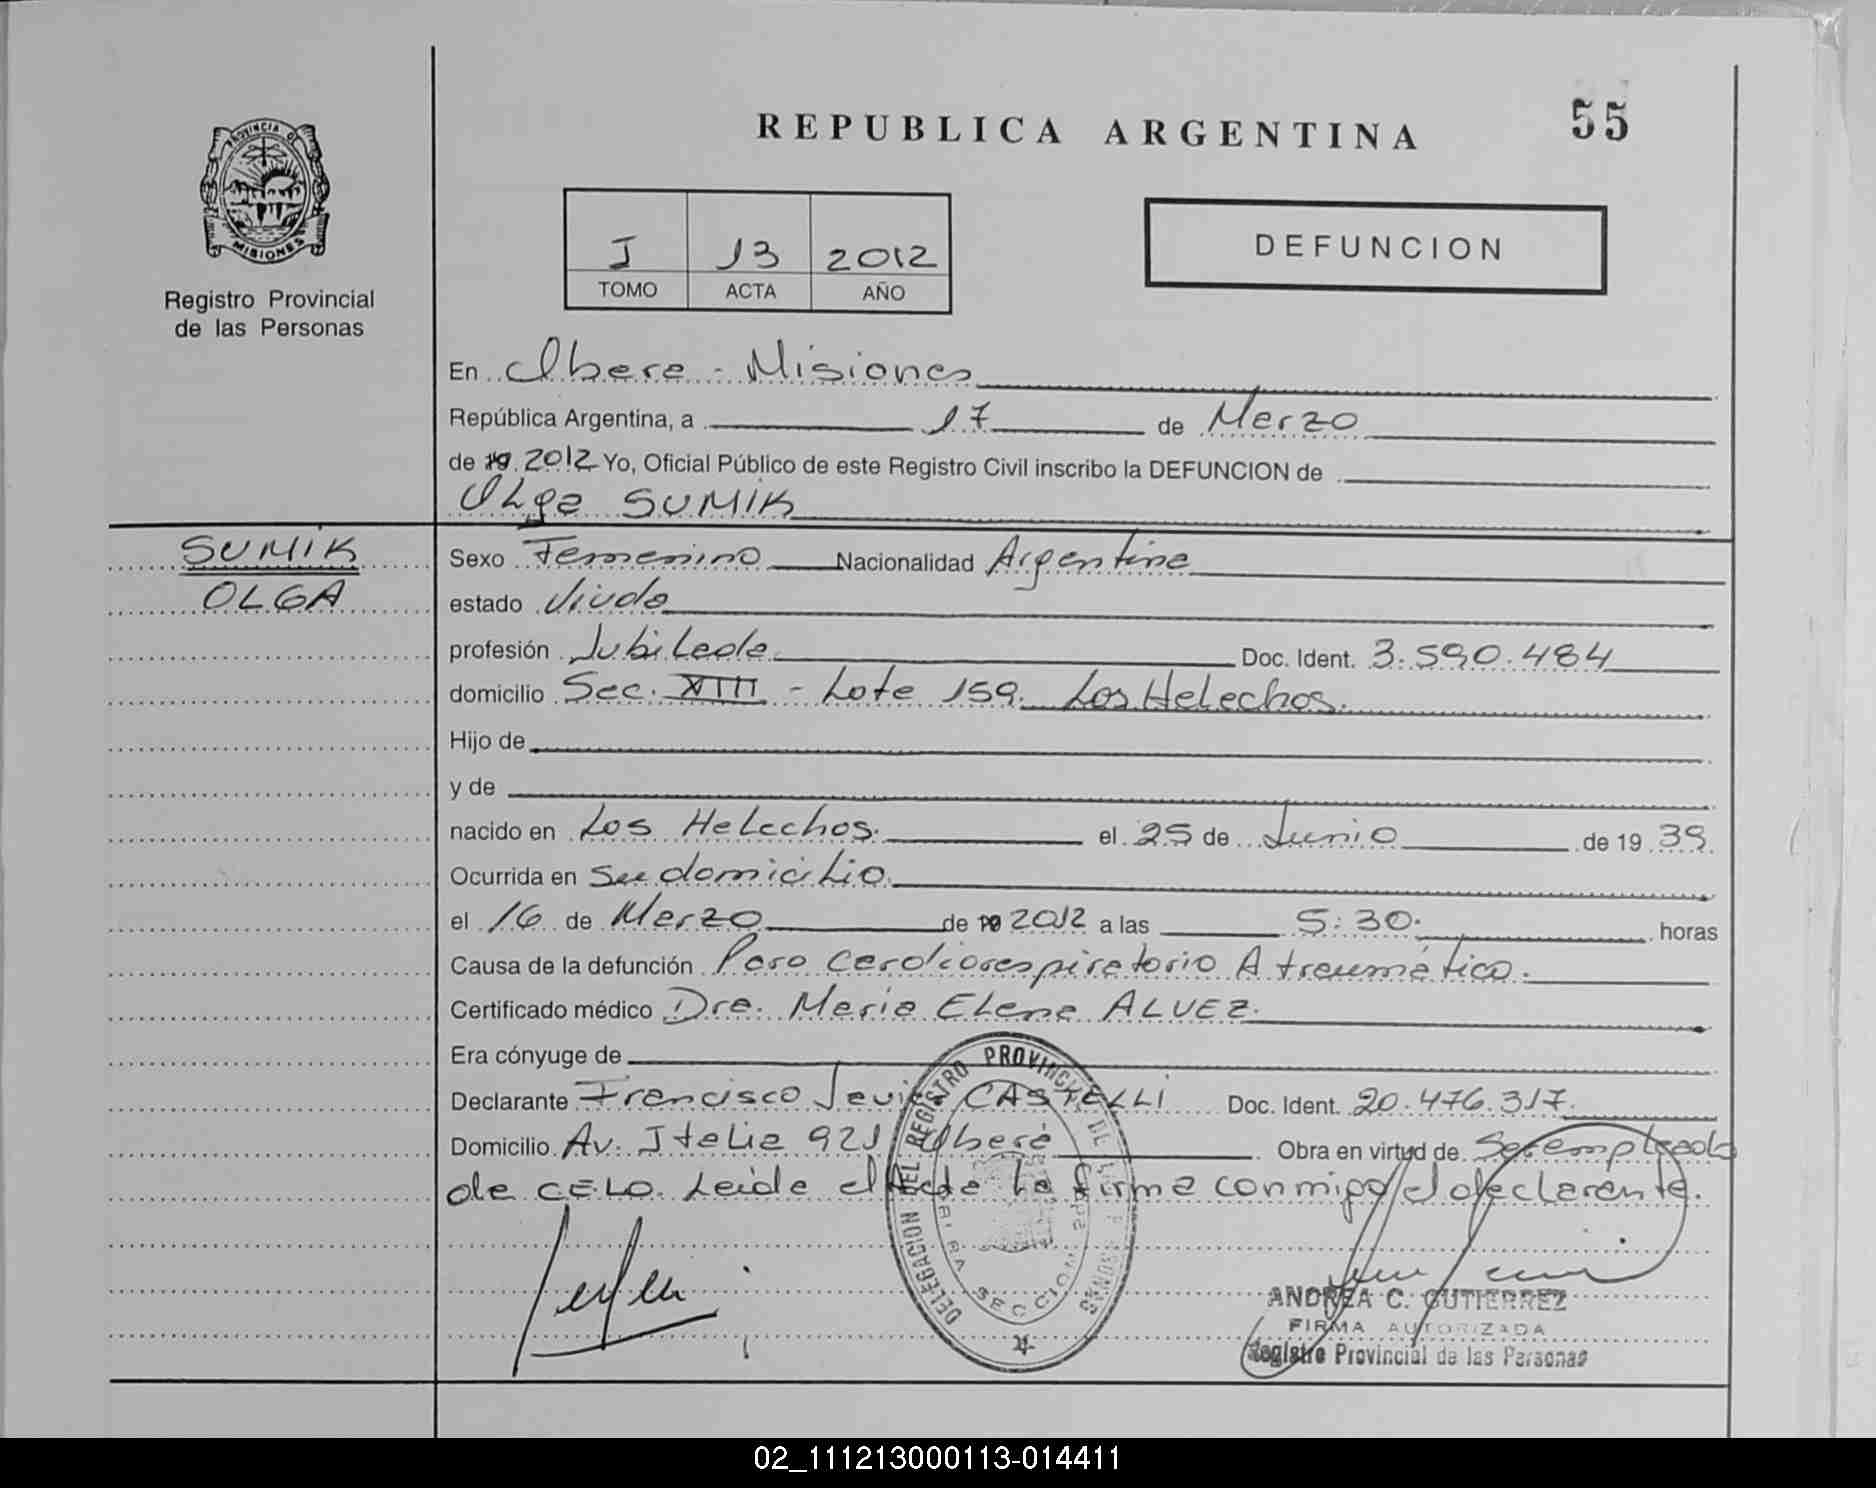 REPUBLICA ARGENTINA
55
PROVINCIA DE
MISIONES
Registro Provincial
de las Personas
I 13 2012
TOMO ACTA AÑO
DEFUNCION
En Obera - Misiones
República Argentina, a 17 de Marzo
de 19 2012 Yo, Oficial Público de este Registro Civil inscribo la DEFUNCION de
Olga SUMIK
SUMIK
OLGA
Sexo Femenino Nacionalidad Argentina
estado Viuda
profesión Jubilada Doc. Ident. 3.590.484
domicilio Sec. XIII - Lote 159. Los Helechos.
Hijo de
y de
nacido en Los Helechos. el 25 de Junio de 19 39.
Ocurrida en Su domicilio
el 16 de Marzo de 19 2012 a las 5:30. horas
Causa de la defunción Paro Cardiorespiratorio Atraumático.
Certificado médico Dra. Maria Elena ALVEZ.
Era cónyuge de
Declarante Francisco Javier CASTELLI Doc. Ident. 20.476.317.
Domicilio Av. Italia 921 Oberá Obra en virtud de Ser empleado
de CELO. Leida el Acta la firma conmigo el declarante.
DELEGACION DEL REGISTRO PROVINCIAL DE LAS PERSONAS
SECCION
ANDREA C. GUTIERREZ
FIRMA AUTORIZADA
Registro Provincial de las Personas
02_111213000113-014411